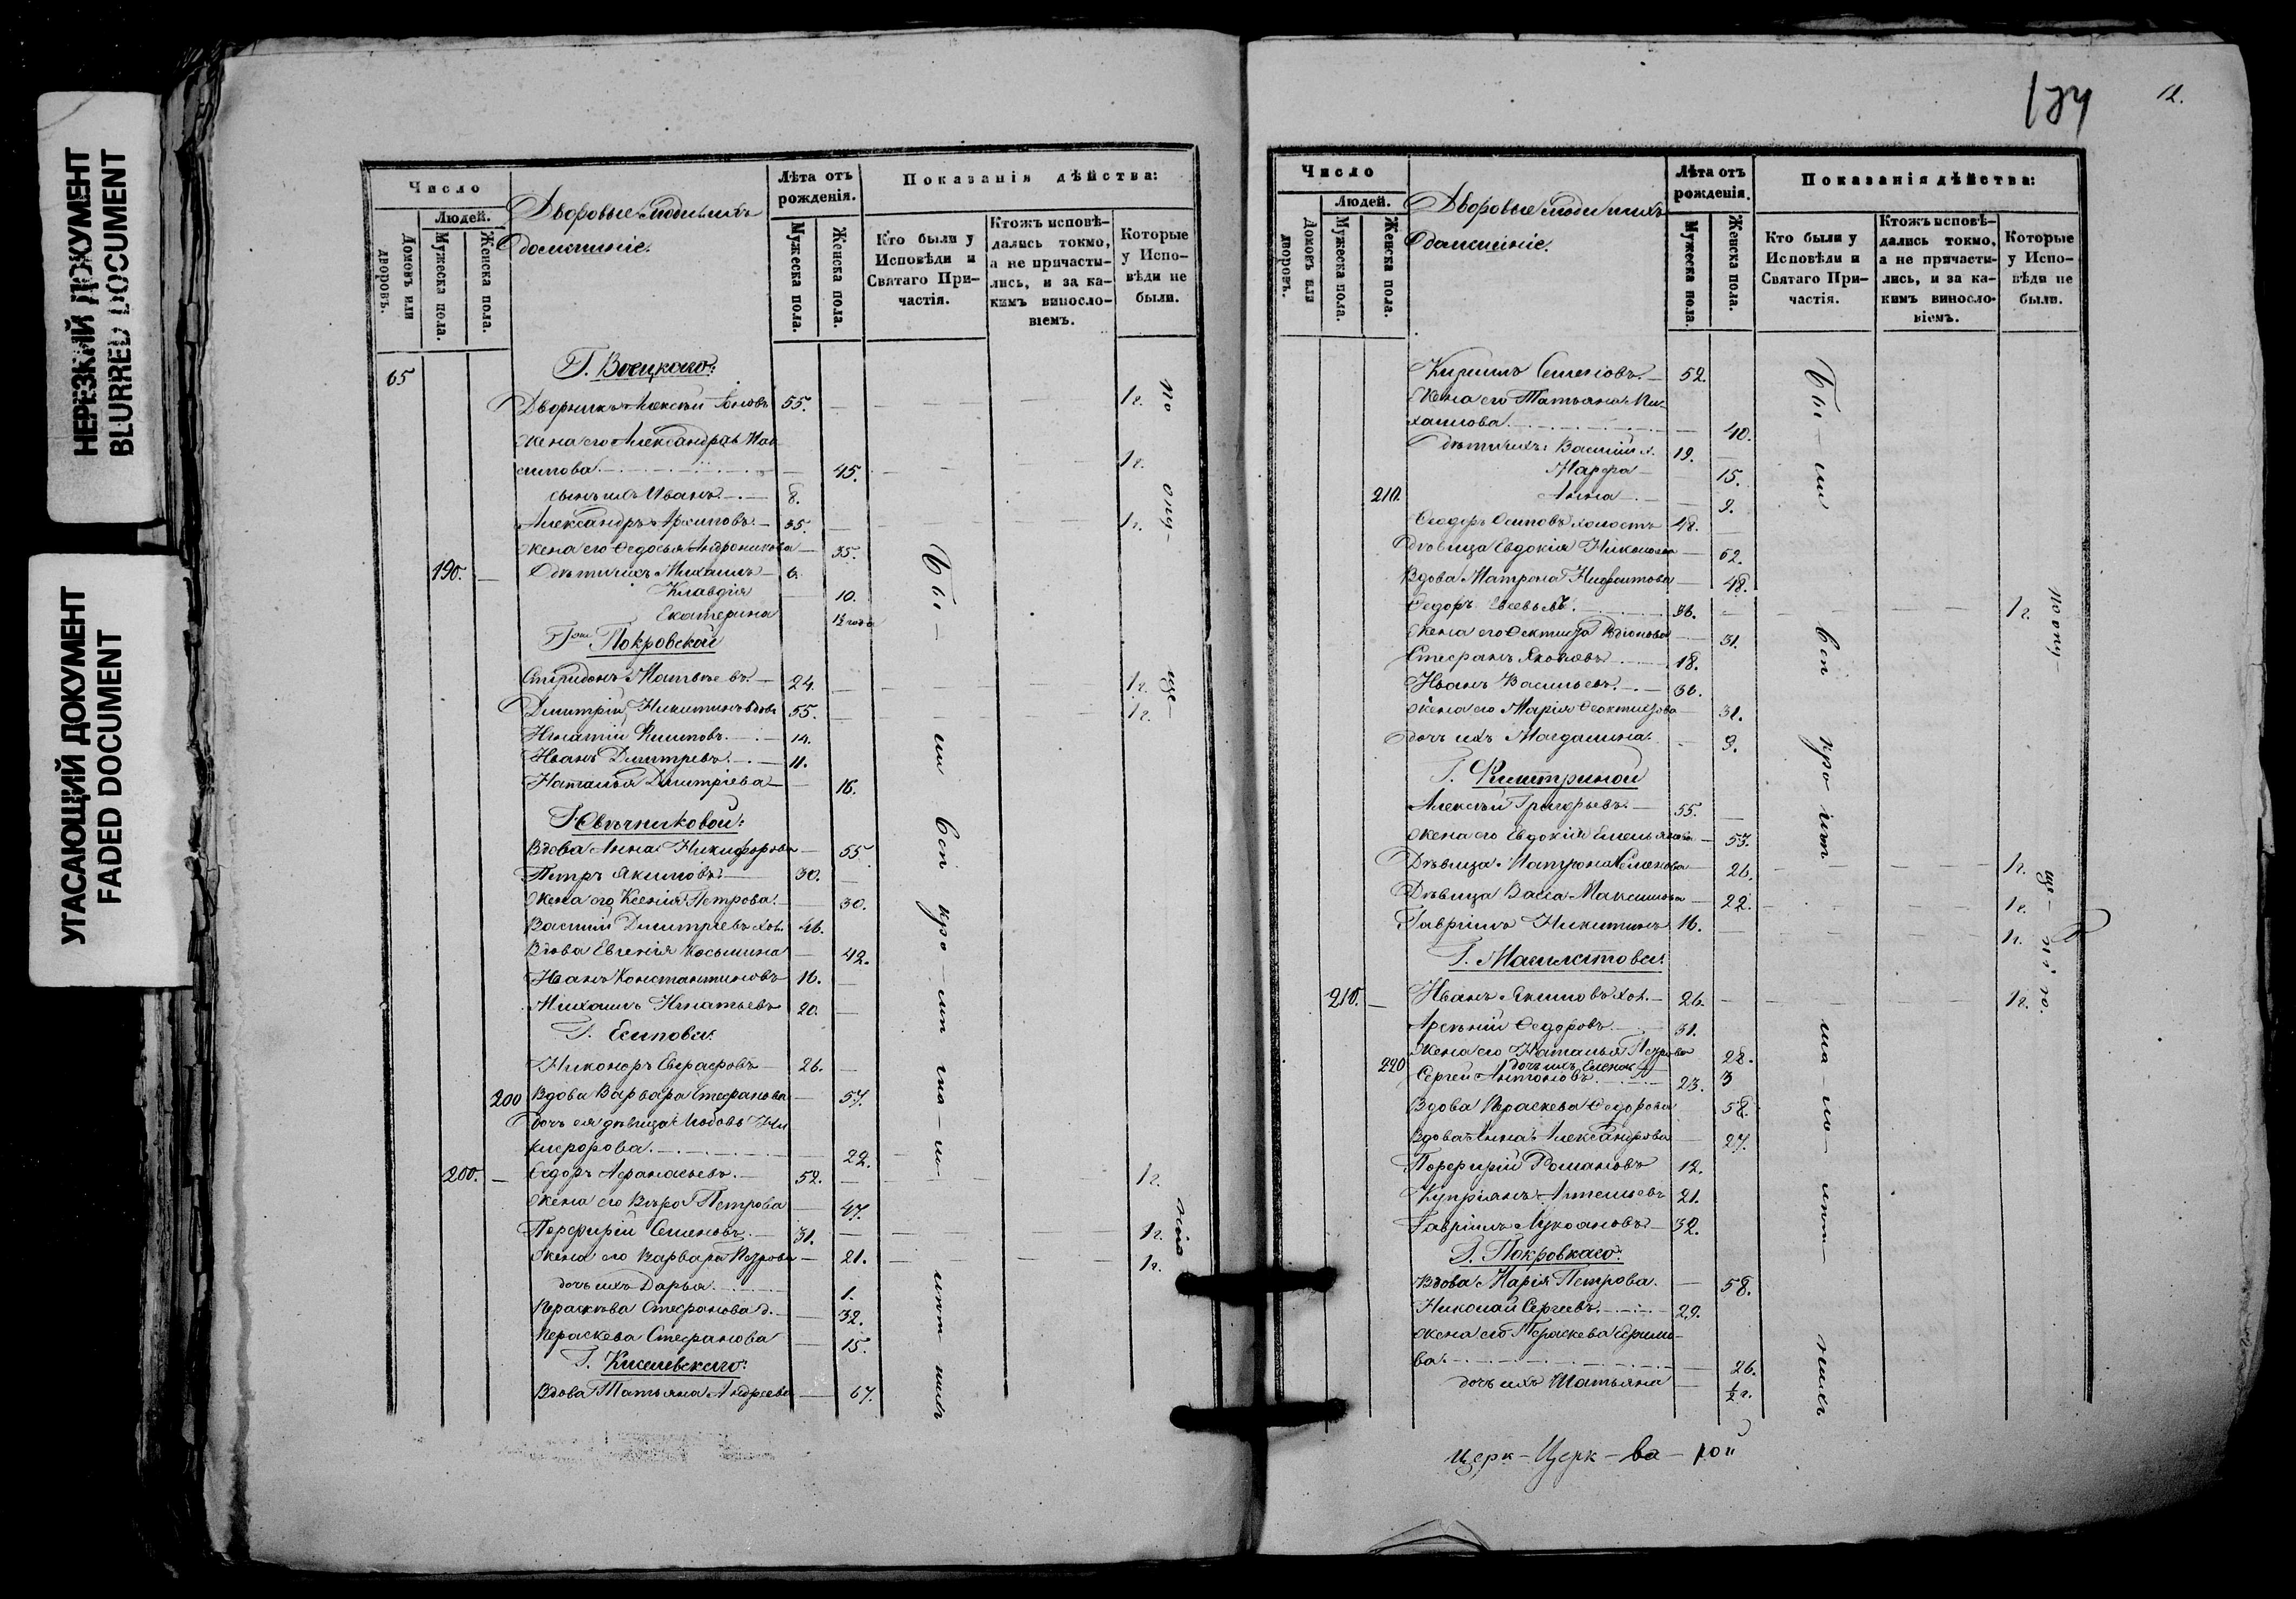 НЕРЕЗКИЙ ДОКУМЕНТ
BLURRED DOCUMENT
УГАСАЮЩИЙ ДОКУМЕНТ
FADED DOCUMENT
Число
Людей.
Домовъ или дворовъ.
Мужеска пола.
Женска пола.
Дворовые люди и ихъ
домашніе.
Лѣта отъ рожденія.
Мужеска пола.
Женска пола.
Показанія дѣйства:
Кто были у Исповѣди и Святаго Причастія.
Ктожъ исповѣдались токмо, а не причастились, и за какимъ винословіемъ.
Которые у Исповѣди не были.
65 Г. Воецкаго:
Дворникъ Алексѣй 55. 1 г.
Жена его Александра Мак
симова 45. 1 г.
сынъ ихъ Иванъ 8.
Александръ Архиповъ 35. 1 г.
Жена его Ѳедосья Андроникова 35.
190. Дѣти ихъ Михаилъ 6.
Клавдія 10.
Екатерина 1½ года
Г-жи Покровской
Спиридонъ Матвѣевъ 24. 1 г.
Димитрій Никитинъ вдовъ 55. 1 г.
Игнатій Филиповъ 14.
Иванъ Димитревъ 11.
Наталья Димитріева 16.
Г. Овѣчниковой:
Вдова Анна Никифорова 55.
Петръ Якимовъ 30.
Жена его Ксенія Петрова 30.
Василій Димитріевъ хол. 46.
Вдова Евгенія Косьмина 42.
Иванъ Константиновъ 16.
Михаилъ Игнатьевъ 20.
Г. Есипова:
Никаноръ Евграфовъ 26.
200 Вдова Варвара Стефанова 57.
Дочь ея дѣвица Любовь Ни
кифорова 22.
200. Ѳедоръ Афанасьевъ 52. 1 г.
Жена его Вѣра Петрова 47.
Порфирій Семеновъ 31. 1 г.
Жена его Варвара Петрова 21. 1 г.
дочь ихъ Дарья 1.
Параскева Стефанова д. 32.
Параскева Стефанова 15.
Г. Киселевскаго:
Вдова Татьяна Андреева 67.
Бы – ли вси
по опу – ще – нію
12.
Число
Людей.
Домовъ или дворовъ.
Мужеска пола.
Женска пола.
Дворовые люди и ихъ
домашніе.
Лѣта отъ рожденія.
Мужеска пола.
Женска пола.
Показанія дѣйства:
Кто были у Исповѣди и Святаго Причастія.
Ктожъ исповѣдались токмо, а не причастились, и за какимъ винословіемъ.
Которые у Исповѣди не были.
Кирилъ Семеновъ 52.
Жена его Татьяна Ми-
хаилова 40.
Дѣти ихъ: Василій 19.
Марфа 15.
210. Анна 9.
Ѳеодоръ Осиповъ холостъ 48.
Дѣвица Евдокія Николаева 62.
Вдова Матрона 48.
Ѳедоръ Евсевьевъ 36. 1 г.
Жена его Ѳектиста 31.
Стефанъ Яковлевъ 18.
Иванъ Васильевъ 36.
Жена его Марія Ѳеоктистова 31.
Дочь ихъ Магдалина 9.
Г.
Алексѣй Григорьевъ 55.
Жена его Евдокія Емельянова 53.
Дѣвица Матрона Семенова 26. 1 г.
Дѣвица Васса Максимова 22. 1 г.
Гавріилъ Никитинъ 16. 1 г.
Г.
210. Иванъ Якимовъ хол. 26. 1 г.
Арсѣній Ѳедоровъ 31.
Жена его Наталья Петрова 28.
дочь ихъ Елена 3
220 Сергей Антоновъ 23.
Вдова Параскева Ѳедорова 58.
Вдова Анна Александрова 27.
Порфирій Романовъ 12.
Купріанъ Артемьевъ 21.
Гавріилъ Лукьяновъ 32.
Г. Покровкаго:
Вдова Марія Петрова 58.
Николай Сергеевъ 29.
Жена его Параскева
ва 26.
дочь ихъ Татьяна ½ г.
Бы – ли вси
по опу – ще – нію.
Церк – Церк – ва – рой